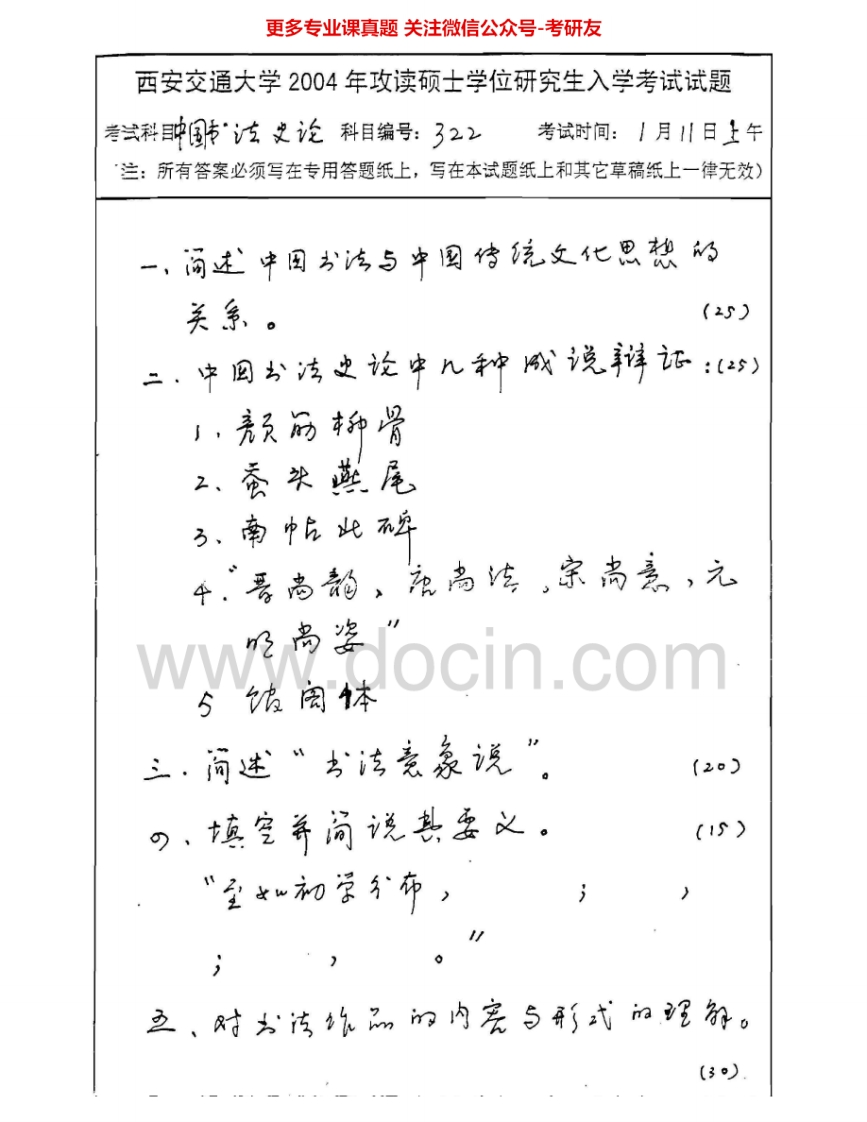 更多专业课真题 关注微信公众号-考研友
西安交通大学2004年攻读硕士学位研究生入学考试试题
考试科目:中国书法史论 科目编号:322 考试时间:1月11日上午
(注:所有答案必须写在专用答题纸上,写在本试题纸上和其它草稿纸上一律无效)
一、简述中国书法与中国传统文化思想的
关系。 (25)
二、中国书法史论中几种成说辩证:(25)
1、颜筋柳骨
2、蚕头燕尾
3、南帖北碑
4、"晋尚韵,唐尚法,宋尚意,元
明尚姿"
www.docin.com
5 馆阁体
三、简述"书法意象说"。 (20)
四、填空并简说其要义。 (15)
"至如初学分布, ; ,
; , 。"
五、对书法作品的内容与形式的理解。
(30)